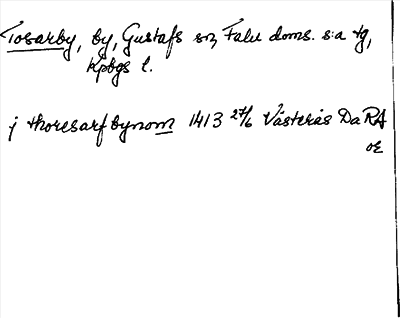 Tosarby, by, Gustafs sn, Falu doms. s:a tg,
Kpbgs l.
j thoresarfbynom 1413 27/6 Västerås Da RA
oE